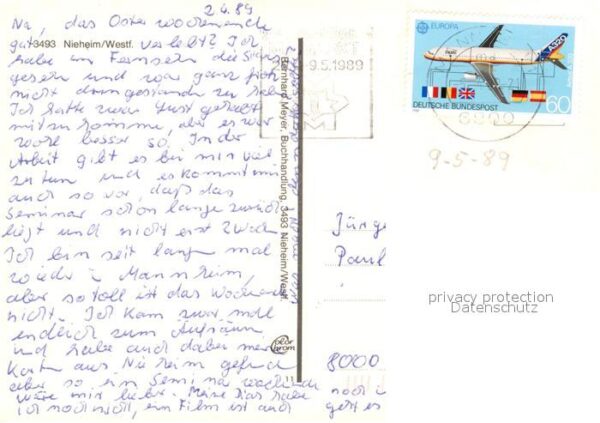 2.4.89
Na, das Oster wochenende
gut verlebt? Ich
3493 Nieheim/Westf.
habe im Fernsehen die
gesehn und war ganz froh
nicht drin gestanden zu haben
Ich hatte zwar Lust gehabt
mitzukommen, aber es war
wohl besser so. In der
Arbeit gibt es bei mir viel
zu tun und es kommt mir
auch so vor, daß das
Seminar schon lange zurück
liegt und nicht erst zwei
Ich bin seit langem mal
wieder in Mannheim,
aber so toll ist das Wochenende
nicht. Ich kam zwar mal
endlich zum Aufräumen
und habe auch dabei meine
Karten aus Nieheim gefunden
aber so ein Seminarwochende
wäre mir lieber. Meine Dias habe
ich noch nicht, ein Film ist auch
noch
geht es
Bernhard Meyer, Buchhandlung, 3493 Nieheim/Westf.
color
chrom
11
9.5.1989
EUROPA
A320
60
DEUTSCHE BUNDESPOST
9-5-89
Jürge
Paul
8000
privacy protection
Datenschutz